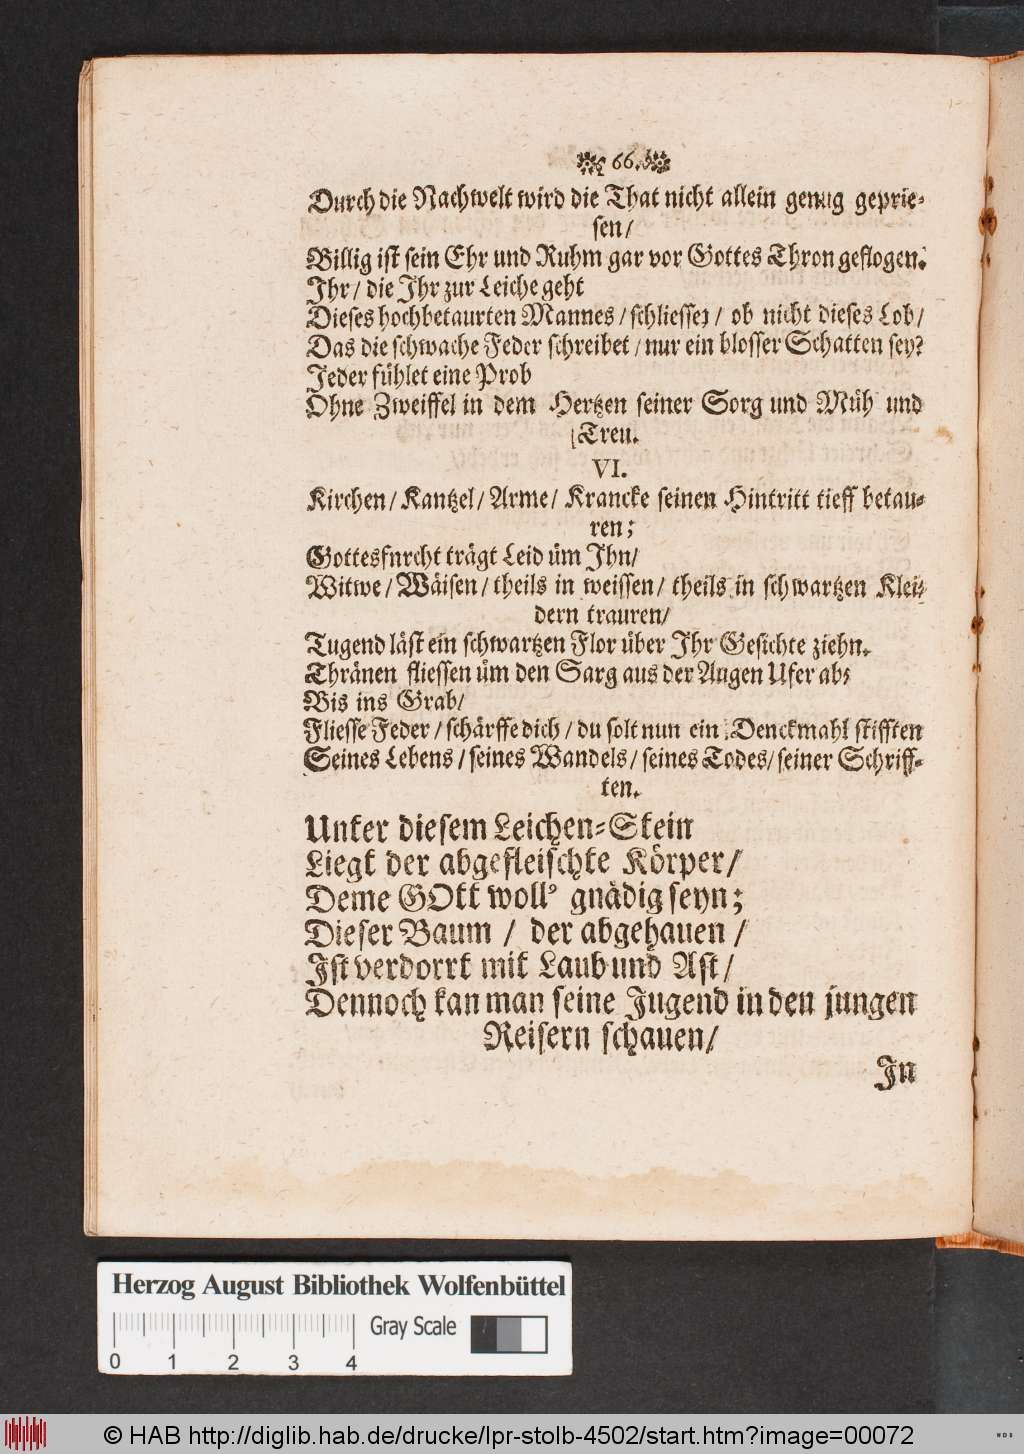 66.
Durch die Nachwelt wird die That nicht allein genug geprie-
sen/
Billig ist sein Ehr und Ruhm gar vor Gottes Thron geflogen.
Ihr/ die Ihr zur Leiche geht
Dieses hochbetaurten Mannes/ schliesset/ ob nicht dieses Lob/
Das die schwache Feder schreibet/ nur ein blosser Schatten sey?
Jeder fühlet eine Prob
Ohne Zweiffel in dem Hertzen seiner Sorg und Müh und
Treu.
VI.
Kirchen/ Kantzel/ Arme/ Krancke seinen Hintritt tieff betau-
ren;
Gottesfurcht trägt Leid üm Ihn/
Witwe/ Wäisen/ theils in weissen/ theils in schwartzen Klei-
dern trauren/
Tugend läst ein schwartzen Flor über Ihr Gesichte ziehn.
Thränen fliessen üm den Sarg aus der Augen Ufer ab;
Bis ins Grab/
Fliesse Feder/ schärffe dich/ du solt nun ein Denckmahl stifften
Seines Lebens/ seines Wandels/ seines Todes/ seiner Schriff-
ten.
Unter diesem Leichen-Stein
Liegt der abgefleischte Körper/
Deme GOtt woll' gnädig seyn;
Dieser Baum / der abgehauen /
Ist verdorrt mit Laub und Ast/
Dennoch kan man seine Jugend in den jungen
Reisern schauen/
In
Herzog August Bibliothek Wolfenbüttel
0 1 2 3 4
Gray Scale
© HAB http://diglib.hab.de/drucke/lpr-stolb-4502/start.htm?image=00072